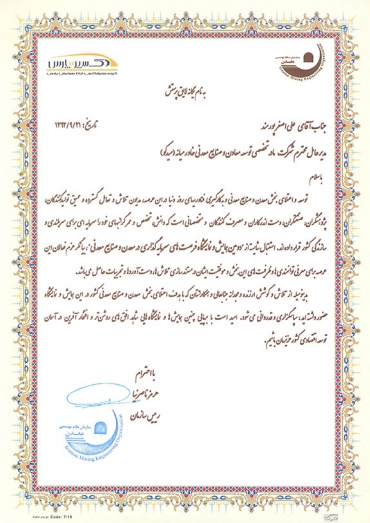 به نام یگانه لایق پرستش
جناب آقای علی اصغر پورمند
تاریخ: ۱۳۹۲/۹/۲۱
مدیرعامل محترم شرکت مادر تخصصی توسعه معادن و صنایع معدنی خاورمیانه (میدکو)
با سلام
توسعه و اعتلای بخش معدن و صنایع معدنی و بکارگیری فناوریهای روز دنیا در این عرصه مدیون تلاش و تعامل گسترده و عمیق تولیدکنندگان،
پژوهشگران، صنعتگران، دست اندرکاران و مصرف کنندگان و متخصصانی است که دانش تخصص و هنرگرانبهای خود را سرمایه ای برای سربلندی و
سازندگی کشور قرار داده اند. استقبال شایسته از سومین همایش و نمایشگاه فرصت های سرمایه گذاری در معدن و صنایع معدنی، بیانگر عزم فعالان این
عرصه برای معرفی توانمندی ها و ظرفیت های این بخش و موفقیت ایشان در مستندسازی تلاش ها، دست آوردها و تجربیات حاصل می باشد.
بدینوسیله از تلاش و کوشش ارزنده و مجدانه جنابعالی و همکارانتان که با هدف اعتلای بخش معدن و صنایع معدنی کشور در این همایش و نمایشگاه
حضور داشته اید، سپاسگزاری و قدردانی می شود. امید است با برپایی چنین همایش ها و نمایشگاه هایی شاهد افق های روشن تر و افتخار آفرین در آسمان
توسعه اقتصادی کشور عزیزمان باشیم.
با احترام
هرمز ناصرنیا
رییس سازمان
سازمان نظام مهندسی
معدن